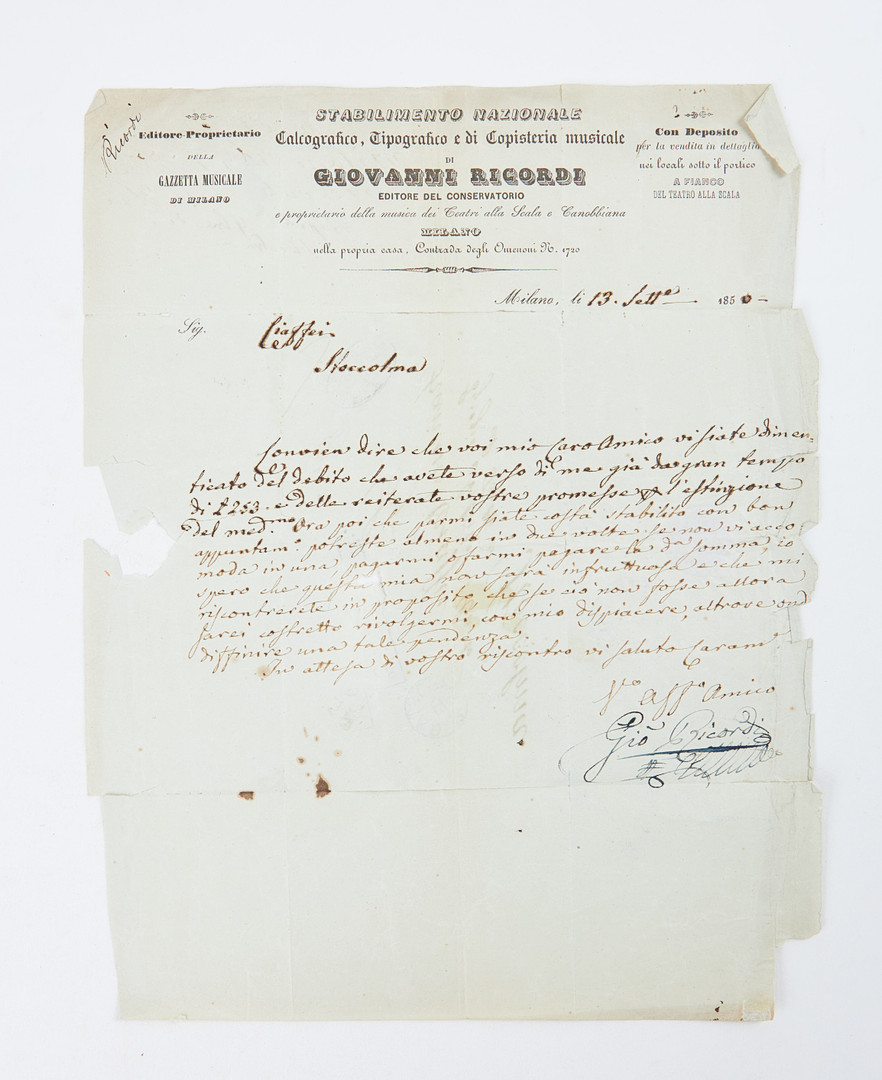 Ricordi
Editore-Proprietario
DELLA
GAZZETTA MUSICALE
DI MILANO
STABILIMENTO NAZIONALE
Calcografico, Tipografico e di Copisteria musicale
DI
GIOVANNI RICORDI
EDITORE DEL CONSERVATORIO
e proprietario della musica dei Teatri alla Scala e Canobbiana
MILANO
nella propria casa, Contrada degli Omenoni N. 1720
Con Deposito
per la vendita in dettaglio
nei locali sotto il portico
A FIANCO
DEL TEATRO ALLA SCALA
Milano, li 13. Sett.e 1850
Sig. Ciaffei
Stoccolma
Convien dire che voi mio Caro Amico vi siate dimen-
ticato del debito che avete verso di me già da gran tempo
di £ 253. e delle reiterate vostre promesse l'estinzione
del med.mo Ora poi che parmi siate costà stabilito con buon
appuntam.o potreste almeno in due volte se non vi acco
moda in una, pagarmi o farmi pagare la d.a somma, io
spero che questa mia non sarà infruttuosa e che mi
riscontrerete in proposito che se ciò non fosse allora
sarei costretto rivolgermi, con mio dispiacere, altrove ond
diffinire una tale pendenza.
In attesa di vostro riscontro vi saluto Caram.
V.o Aff.o Amico
Gio Ricordi